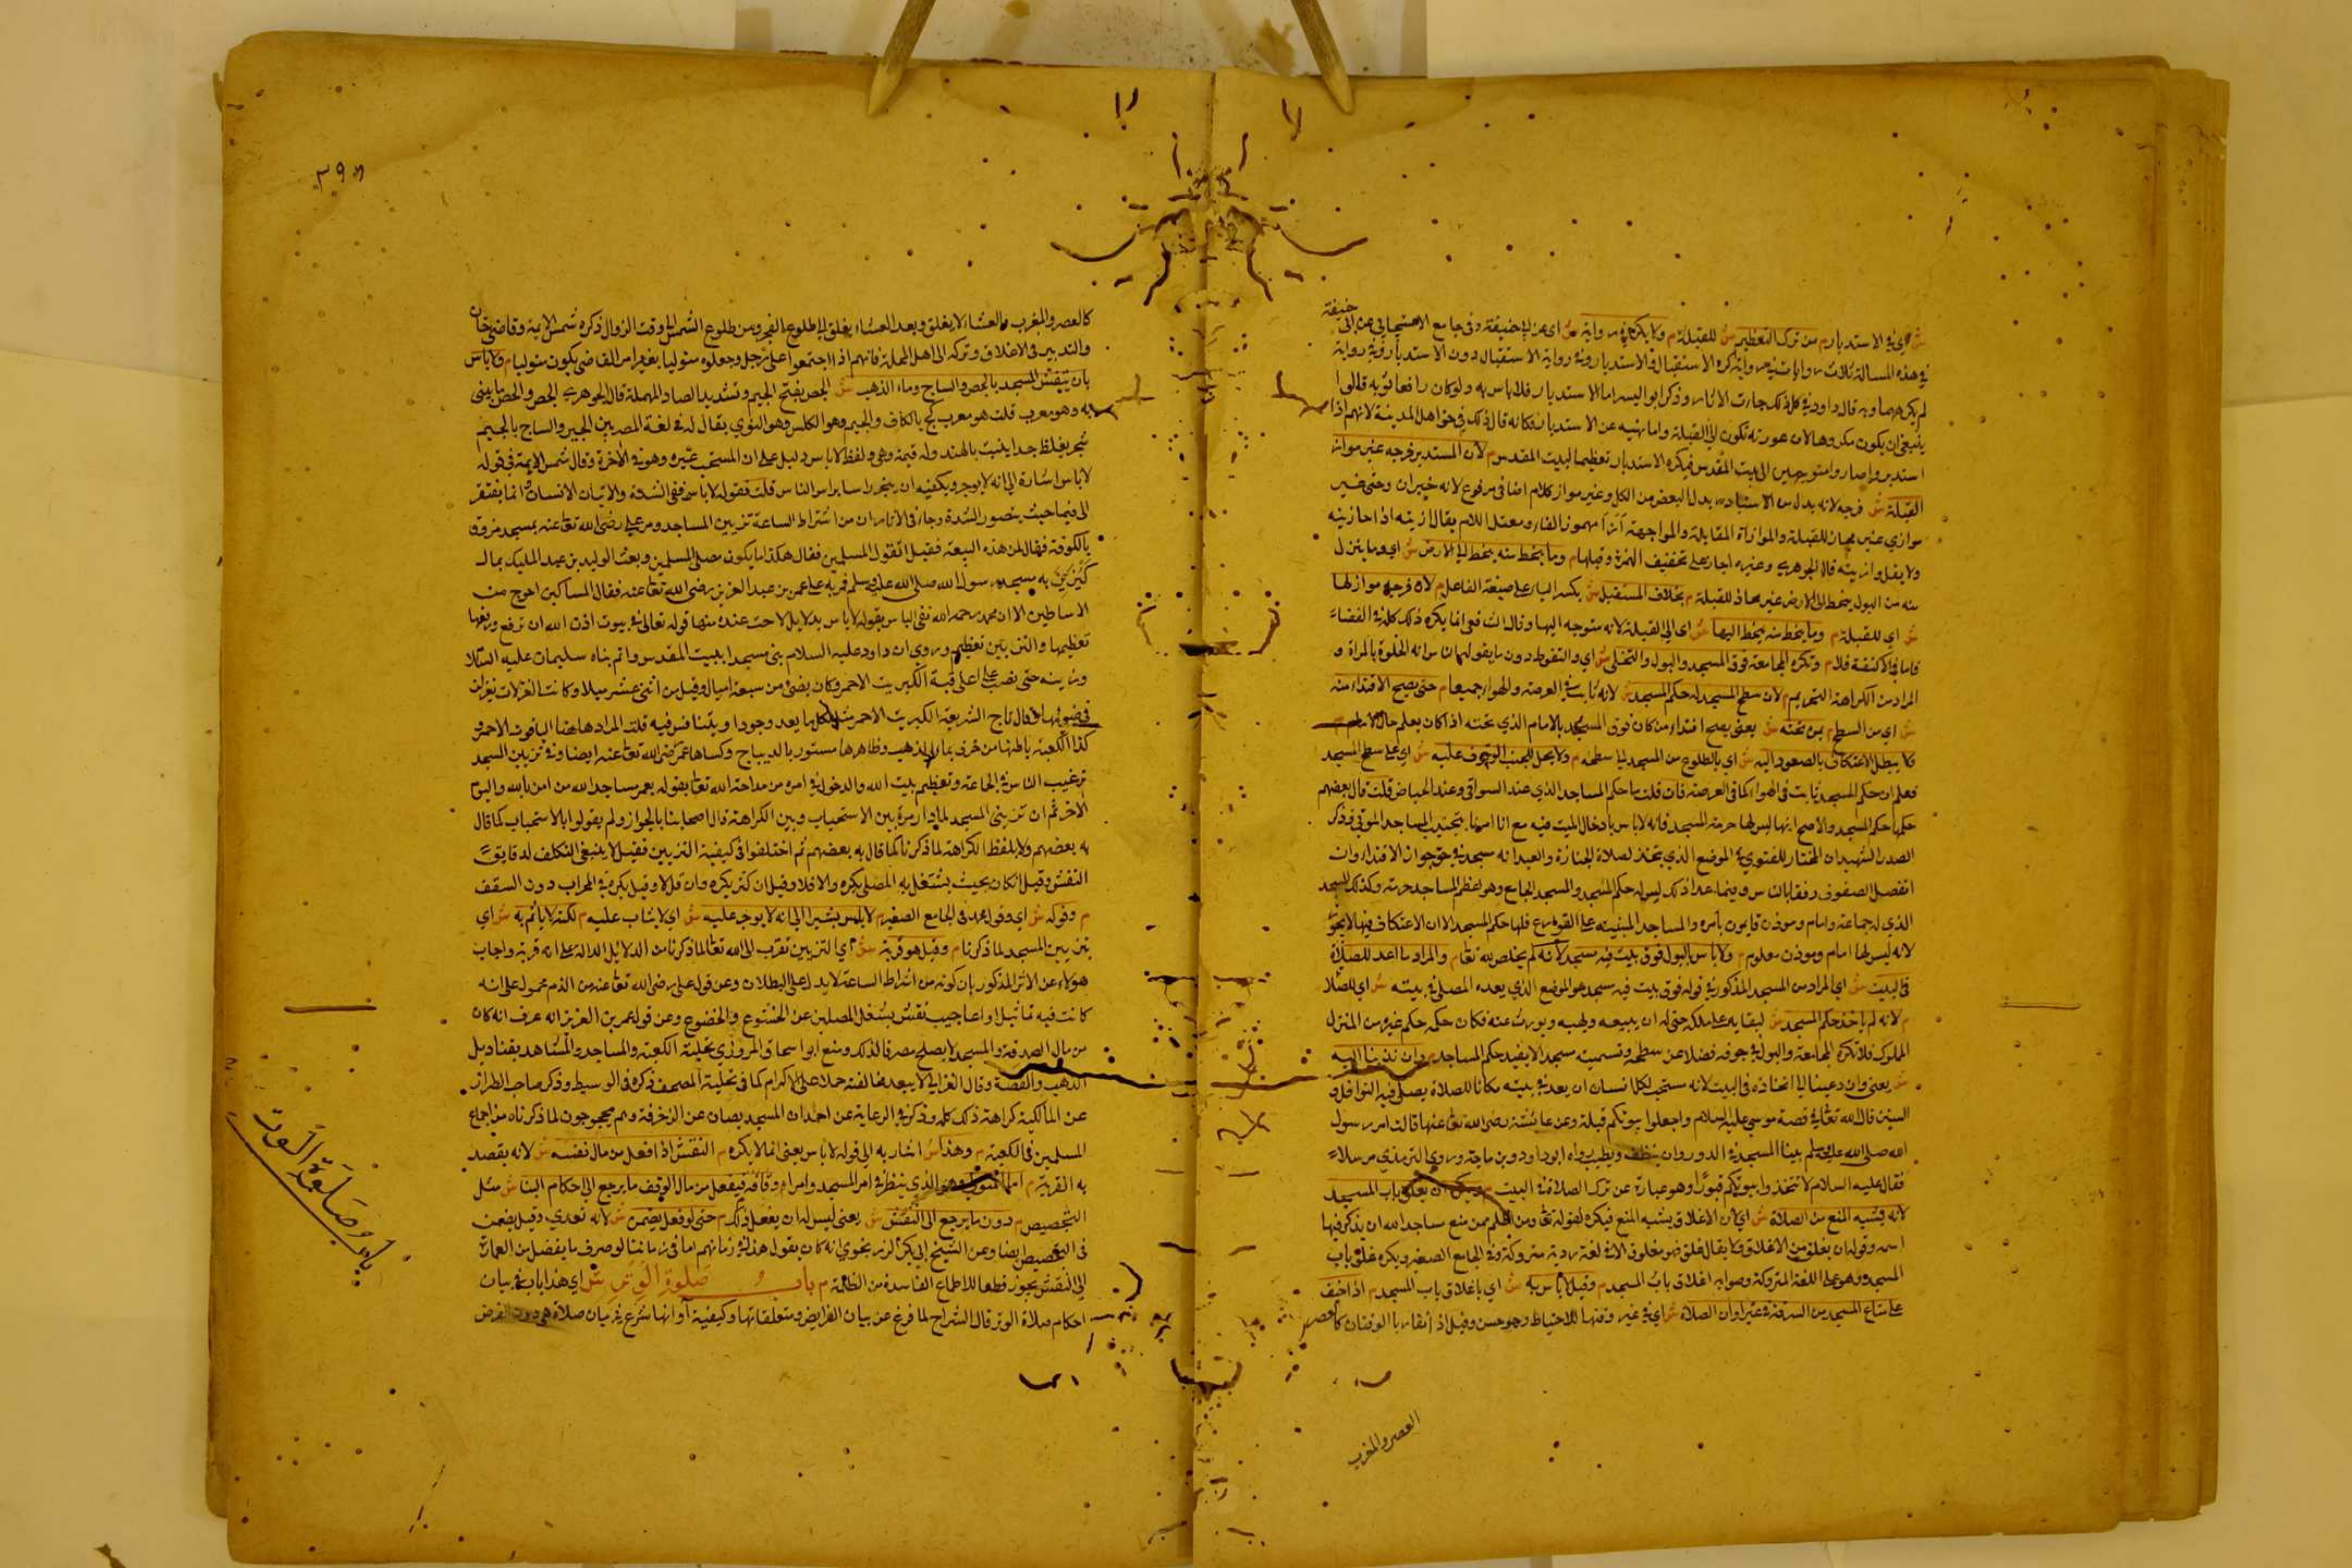 ش اي في الاستدبار م من ترك التعظيم ش للقبلة م ولا يكره في رواية ش اي عن ابي حنيفة وفي جامع الاسبيجابي عن ابي حنيفة
في هذه المسالة ثلاث روايات في رواية كره الاستقبال والاستدبار وفي رواية الاستقبال دون الاستدبار وفي رواية
لم يكرههما وبه قال داود في كل ذلك جاءت الاثار وذكر ابو اليسر اما الاستدبار فلا باس به ولو كان رافعا ثوبه قالوا
ينبغي ان يكون مكروها لان عورته تكون الى القبلة واما نهيه عن الاستدبار فكانه قال ذلك في حق اهل المدينة لانهم اذا
استدبروا صاروا متوجهين الى بيت المقدس فيكره الاستدبار تعظيما لبيت المقدس م لان المستدبر فرجه غير مواز
القبلة ش فرجه لانه بدل من الاستدبار بدل البعض من الكل وغير مواز كلام اضافي مرفوع لانه خبر ان
موازي غير محاذ للقبلة والموازاة المقابلة والمواجهة مهموز الفاء ومعتل اللام يقال ازيته اذا حاذيته
ولا يقل وازيته قال الجوهري وغيره اجازه على تخفيف الهمزة وقبلها م وما ينحط منه ينحط الى الارض ش اي وما ينزل
منه من البول ينحط الى الارض غير محاذ للقبلة م بخلاف المستقبل ش بكسر الباء على صيغة الفاعل م لان فرجه مواز لها
ش اي للقبلة م وما ينحط منه ينحط اليها ش اي الى القبلة لانه متوجه اليها وقال الشافعي انما يكره ذلك كله في الفضاء
فاما في الاكنفة فلا م وتكره المجامعة فوق المسجد والبول والتخلي ش اي والتغوط
المراد من الكراهة التحريم م لان سطح المسجد له حكم المسجد ش لانه ثابت في العرصة والهواء جميعا م حتى يصح الاقتداء منه
ش اي من السطح م بمن تحته ش يعني يصح اقتداء من كان فوق المسجد بالامام الذي تحته اذا كان يعلم حال الامام م
ولا يبطل الاعتكاف بالصعود اليه ش اي بالطلوع من المسجد الى سطحه م ولا يحل للجنب الوقوف عليه ش اي على سطح المسجد
فعلم ان حكم المسجد ثابت في الهواء كما في العرصة فان قلت ما حكم المساجد الذي عند السواقي وعند الحياض قلت قال بعضهم
حكمها حكم المسجد والاصح انها ليس لها حرمة المسجد فانه لا باس بادخال الميت فيه مع انا امرنا بتجنيب المساجد الموتى وذكر
الصدر الشهيد ان المختار للفتوى في الموضع الذي يتخذ لصلاة الجنازة والعيد انه مسجد في حق جواز الاقتداء وان
انفصل الصفوف رفقا بالناس وفيما عدا ذلك ليس له حكم المسجد والمسجد الجامع وهو اعظم المساجد حرمة وكذلك المسجد
الذي له جماعة وامام وموذن قايمون بامره والمساجد المبنية على القوارع فلها حكم المسجد الا ان الاعتكاف فيها لا يجوز
لانه ليس لها امام وموذن معلوم م ولا باس بالبول فوق بيت فيه مسجد لانه لم يخلص لله تعالى م والمراد ما اعد للصلاة
في البيت ش اي المراد من المسجد المذكور في قوله فوق بيت فيه مسجد هو الموضع الذي يعده المصلي في بيته ش اي للصلاة
م لانه لم ياخذ حكم المسجد ش لبقايه على ملكه حتى له ان يبيعه ويهبه ويورث عنه فكان حكمه حكم غيره من المنزل
المملوك فلا تكره المجامعة والبول في جوفه فضلا عن سطحه وتسميته مسجدا لا يفيد حكم المساجد م وان ندبنا اليه
ش يعني وان دعينا الى اتخاذه في البيت لانه مستحب لكل انسان ان يعد في بيته مكانا للصلاة يصلي فيه النوافل و
السنن قال الله تعالى في قصة موسى عليه السلام واجعلوا بيوتكم قبلة وعن عايشة رضي الله تعالى عنها قالت امر رسول
الله صلى الله عليه وسلم ببناء المسجد في الدور وان ينظف ويطيب رواه ابو داود وبن ماجة وروى الترمذي مرسلا
فقال عليه السلام لا تتخذوا بيوتكم قبورا وهو عبارة عن ترك الصلاة في البيت م ويكره ان يغلق باب المسجد
لانه يشبه المنع من الصلاة ش اي لان الاغلاق يشبه المنع فيكره لقوله تعالى ومن اظلم ممن منع مساجد الله ان يذكر فيها
اسمه وقوله ان يغلق من الاغلاق ولا يقال غلق فهو مغلوق الا في لغة ردية متروكة وفي الجامع الصغير ويكره غلق باب
المسجد وهو على اللغة المتروكة وصوابه اغلاق باب المسجد م وقيل لا باس به ش اي باغلاق باب المسجد م اذا خيف
على متاع المسجد من السرقة في غير اوان الصلاة ش اي في غير وقتها للاحتياط وهو حسن وقيل اذا تقاربا الوقتان كالعصر
العصر والمغرب
٣٩٥
كالعصر والمغرب والعشاء لا يغلق وبعد العشاء يغلق الى طلوع الفجر ومن طلوع الشمس الى وقت الزوال ذكره شمس الايمة وقاضي خان
والتدبير في الاغلاق وتركه الى اهل المحلة فانهم اذا اجتمعوا على رجل وجعلوه متوليا بغير امر القاضي يكون متوليا م ولا باس
بان ينقش المسجد بالجص والساج وماء الذهب ش الجص بفتح الجيم وتشديد الصاد المهملة قال الجوهري الجص والجص ما يبنى
به وهو معرب قلت هو معرب كج بالكاف والجيم وهو الكلس وهو النوري يقال له في لغة المصريين الجير والساج بالجيم
شجر يغلظ جدا ينبت بالهند وله قيمة وفي ولفظ لا باس دليل على ان المستحب غيره وهو في الاخرة وقال شمس الايمة في قوله
لا باس اشارة الى انه لا يوجر ويكفيه ان ينجو راسا براس
الى فيما حيث وجاز في الاثار ان من اشتراط الساعة تزيين المساجد ومر علي رضي الله تعالى عنه بمسجد مزوق
بالكوفة فقال لمن هذه البيعة فقيل اتقول المسلمين فقال هكذا ما يكون مصلى المسلمين وبعث الوليد بن عبد الملك بمال
به مسجد رسول الله صلى الله عليه وسلم فمر به على عمر بن عبد العزيز رضي الله تعالى عنه فقال المساكين احوج من
الاساطين الا ان محمد رحمه الله نفى الباس بقوله لا باس بدلايل لاحت عنده منها قوله تعالى في بيوت اذن الله ان ترفع ورفعها
تعظيمها والتزيين تعظيم وروي ان داود عليه السلام بنى مسجدا ببيت المقدس واتم بناه سليمان عليه السلام
وزينه حتى نصب على اعلى قبة الكبريت الاحمر وكان يضيء من سبعة اميال وقيل من اثني عشر ميلا وكانت الغزلات يغزلن
في ضوئها وقال تاج الشريعة الكبريت الاحمر قلت المراد هاهنا الياقوت الاحمر و
كذا الكعبة باطنها مزخرف بماء الذهب وظاهرها مستور بالديباج وكساها عمر رضي الله تعالى عنه ايضا وفي تزيين المسجد
ترغيب الناس في الجماعة وتعظيم بيت الله والدخول في امره من مداحة الله تعالى بقوله يعمر مساجد الله من امن بالله واليوم
الاخر ثم ان تزيين المسجد لما دار مرة بين الاستحباب وبين الكراهة قال اصحابنا بالجواز ولم يقولوا بالاستحباب كما قال
به بعضهم ولا بلفظ الكراهة لما ذكرنا كما قال به بعضهم ثم اختلفوا في كيفية التزيين فقيل لا ينبغي التكلف لدقايق
النقش وقيل ان كان بحيث يشتغل به المصلي يكره والا فلا وقيل ان كثر يكره وان قل لا وقيل يكره في المحراب دون السقف
م وقوله ش اي وقول محمد في الجامع الصغير م لا باس يشير الى انه لا يوجر عليه ش اي لا يثاب عليه م لكنه لا ياثم به ش اي
تزيين المسجد لما ذكرنا م وقيل هو قربة ش اي التزيين تقرب الى الله تعالى لما ذكرنا من الدلايل الدالة على انه قربة واجاب
هولاء عن الاثر المذكور بان كونه من اشراط الساعة لا يدل على البطلان وعن قول علي رضي الله تعالى عنه من الذم محمول على انه
كانت فيه تماثيل او اعاجيب نقش يشغل المصلين عن الخشوع والخضوع وعن قول عمر بن العزيز انه عرف انه كان
من مال الصدقة والمسجد لا يصلح مصرفا لذلك ومنع ابو اسحاق المروزي تحلية الكعبة والمساجد والمشاهد بقناديل
الذهب والفضة وقال الغزالي لا يبعد مخالفته حملا على الاكرام كما في تحلية المصحف ذكره في الوسيط وذكر صاحب الطراز
عن المالكية كراهة ذلك كله وذكر في الرعاية عن احمد ان المسجد يصان عن الزخرفة وهم محجوجون لما ذكرناه من اجماع
المسلمين في الكعبة م وهذا ش اشار به الى قوله لا باس يعني انما لا يكره م النقش اذا فعل من مال نفسه ش لانه يقصد
به القربة م اما المتولي وهو الذي ينظر في امر المسجد وامر اوقافه فيفعل من مال الوقف ما يرجع الى احكام البناء ش مثل
التجصيص م دون ما يرجع الى النقش ش يعني ليس له ان يفعل ذلك م حتى لو فعل يضمن ش لانه تعدي وقيل يضمن
في التجصيص ايضا وعن الشيخ ابي بكر الزرنجري انه كان يقول هذا في زمانهم اما في زماننا لو صرف ما يفضل من العمارة
الى النقش يجوز قطعا للاطماع الفاسدة من الظلمة م باب صلوة الوتر ش اي هذا باب في بيان
احكام صلاة الوتر قال الشراح لما فرغ عن بيان الفرايض ومتعلقاتها وكيفية اوانها شرع في بيان صلاة هي دون الفرض
باب صلوة الوتر